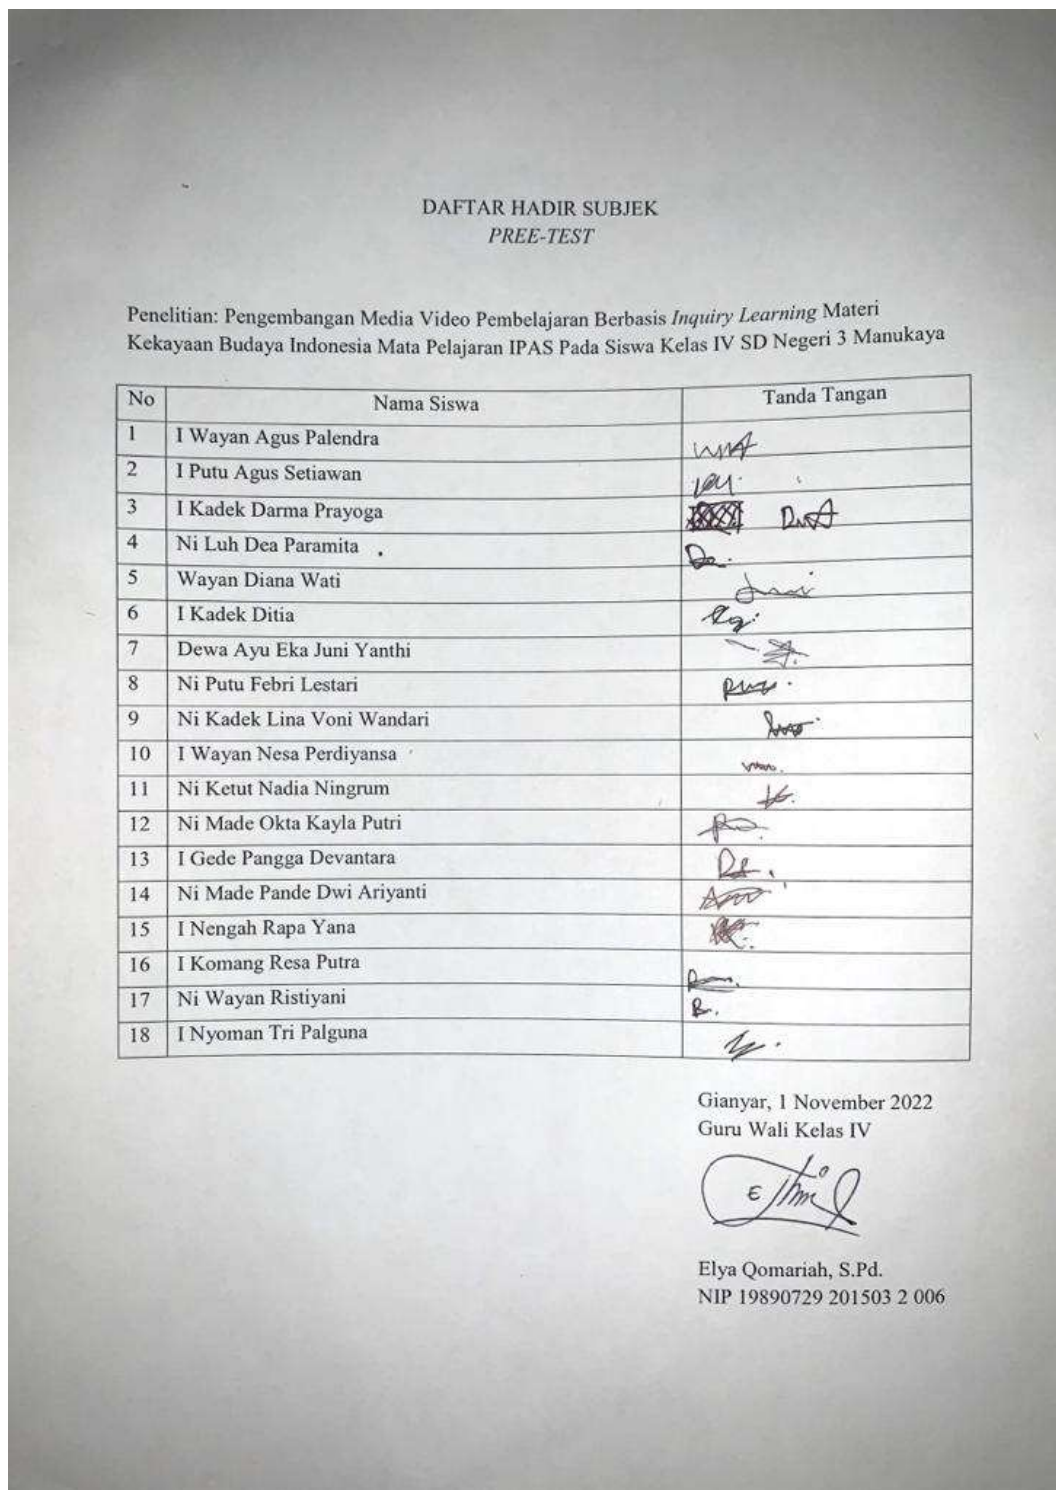 DAFTAR HADIR SUBJEK
PREE-TEST
Penelitian: Pengembangan Media Video Pembelajaran Berbasis Inquiry Learning Materi
Kekayaan Budaya Indonesia Mata Pelajaran IPAS Pada Siswa Kelas IV SD Negeri 3 Manukaya
No Nama Siswa Tanda Tangan
1 I Wayan Agus Palendra
2 I Putu Agus Setiawan
3 I Kadek Darma Prayoga
4 Ni Luh Dea Paramita
5 Wayan Diana Wati
6 I Kadek Ditia
7 Dewa Ayu Eka Juni Yanthi
8 Ni Putu Febri Lestari
9 Ni Kadek Lina Voni Wandari
10 I Wayan Nesa Perdiyansa
11 Ni Ketut Nadia Ningrum
12 Ni Made Okta Kayla Putri
13 I Gede Pangga Devantara
14 Ni Made Pande Dwi Ariyanti
15 I Nengah Rapa Yana
16 I Komang Resa Putra
17 Ni Wayan Ristiyani
18 I Nyoman Tri Palguna
Gianyar, 1 November 2022
Guru Wali Kelas IV
Elya Qomariah, S.Pd.
NIP 19890729 201503 2 006